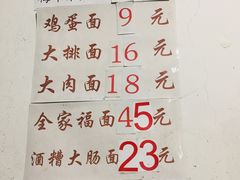 鸡蛋面 9 元
大排面 16 元
大肉面 18 元
全家福面 45 元
酒糟大肠面 23 元